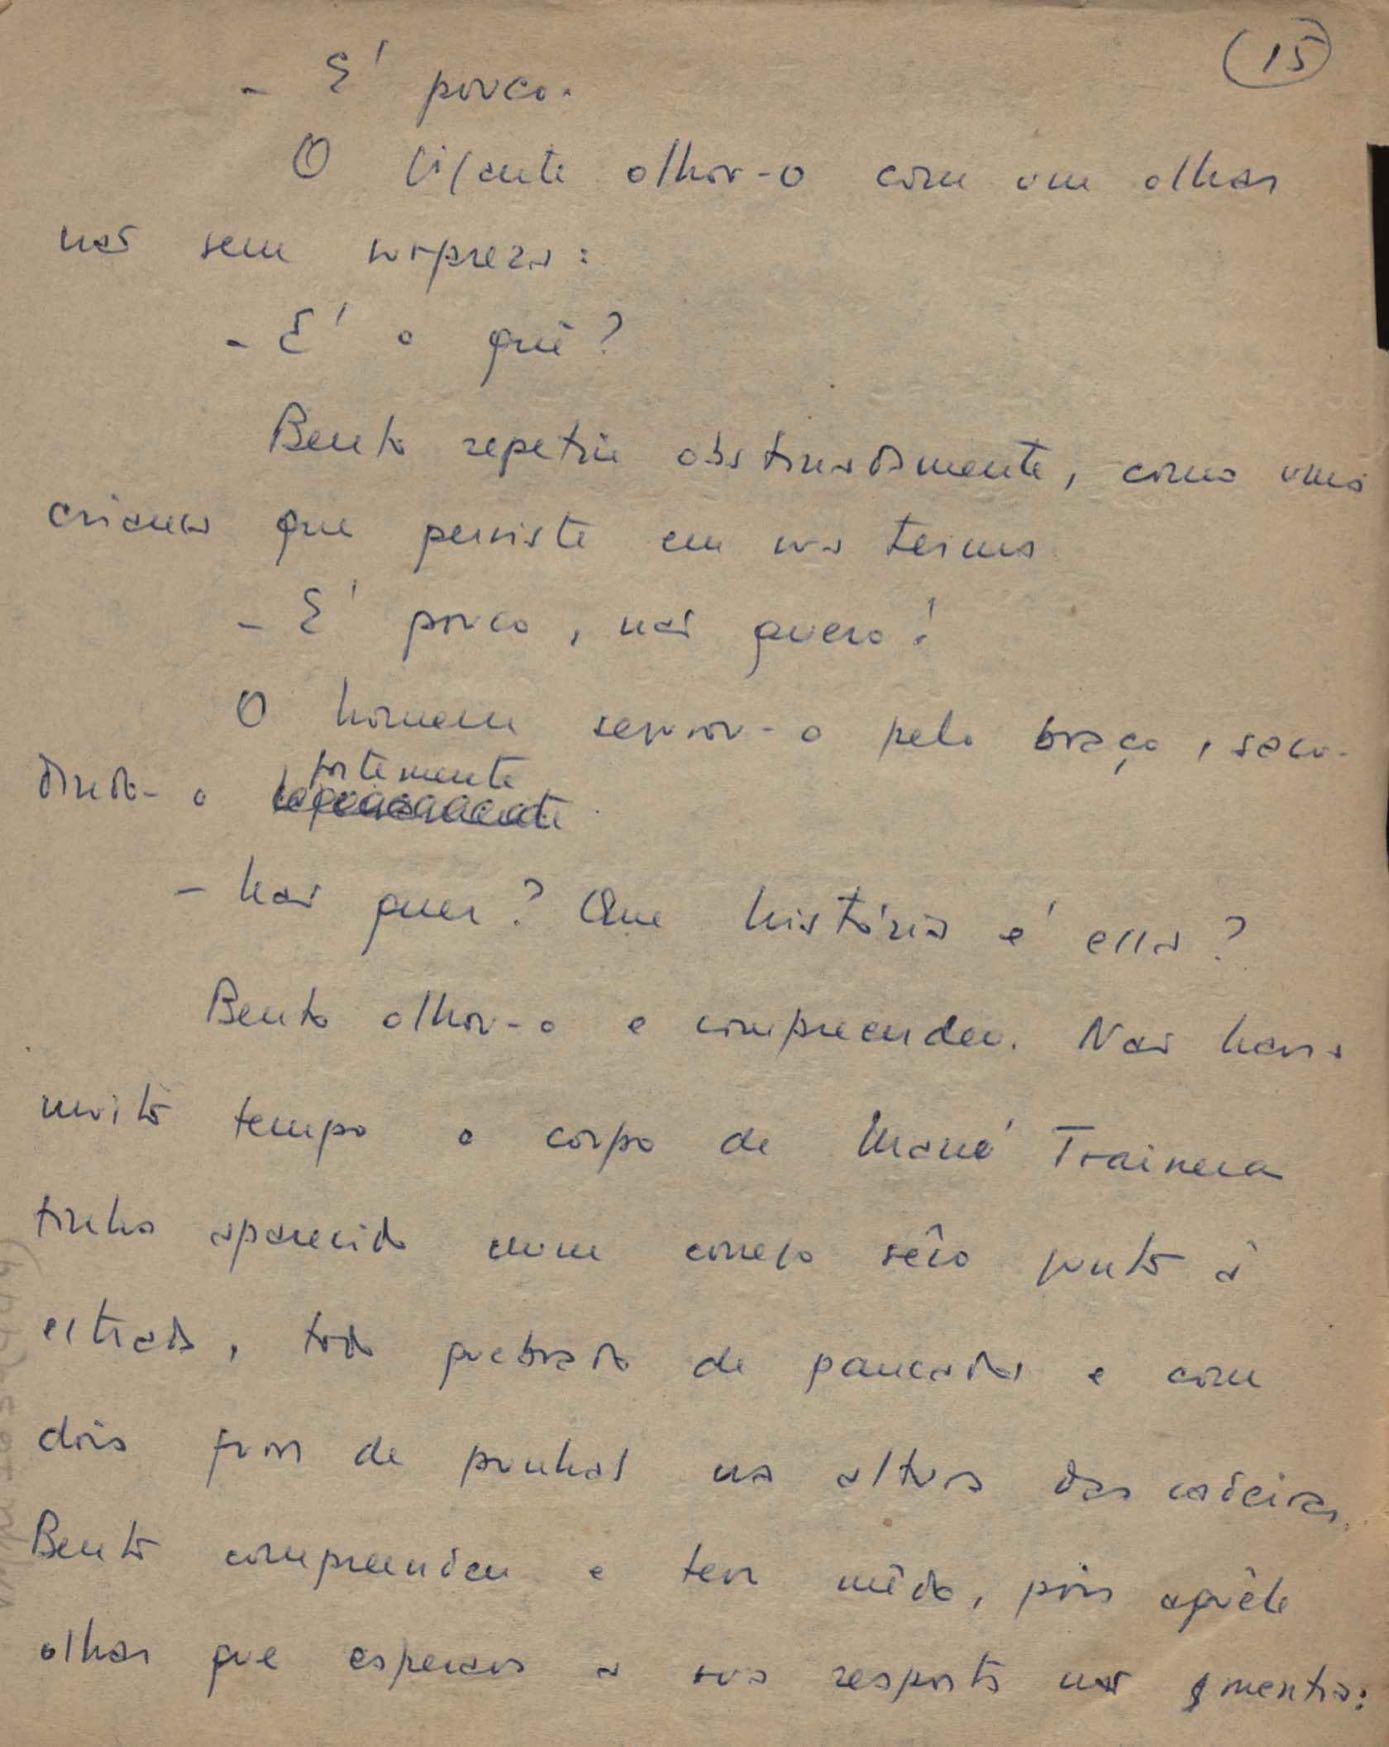 15
- É pouco.
O Vicente olhou-o com um olhar
não sem surpreza:
- É o quê?
Bento repetiu obstinadamente, como uma
criança que persiste em sua teima
- É pouco, não quero!
O homem segurou-o pelo braço, sacu-
dindo-o fortemente
- Não quer? Que história é essa?
Bento olhou-o e compreendeu. Não havia
muito tempo o corpo de Mané Traineira
tinha aparecido num corrego sêco junto à
estrada, todo quebrado de pancadas e com
dois furos de punhal na altura das cadeiras.
Bento compreendeu e teve mêdo, pois aquêle
olhar que esperava a sua resposta não mentia: